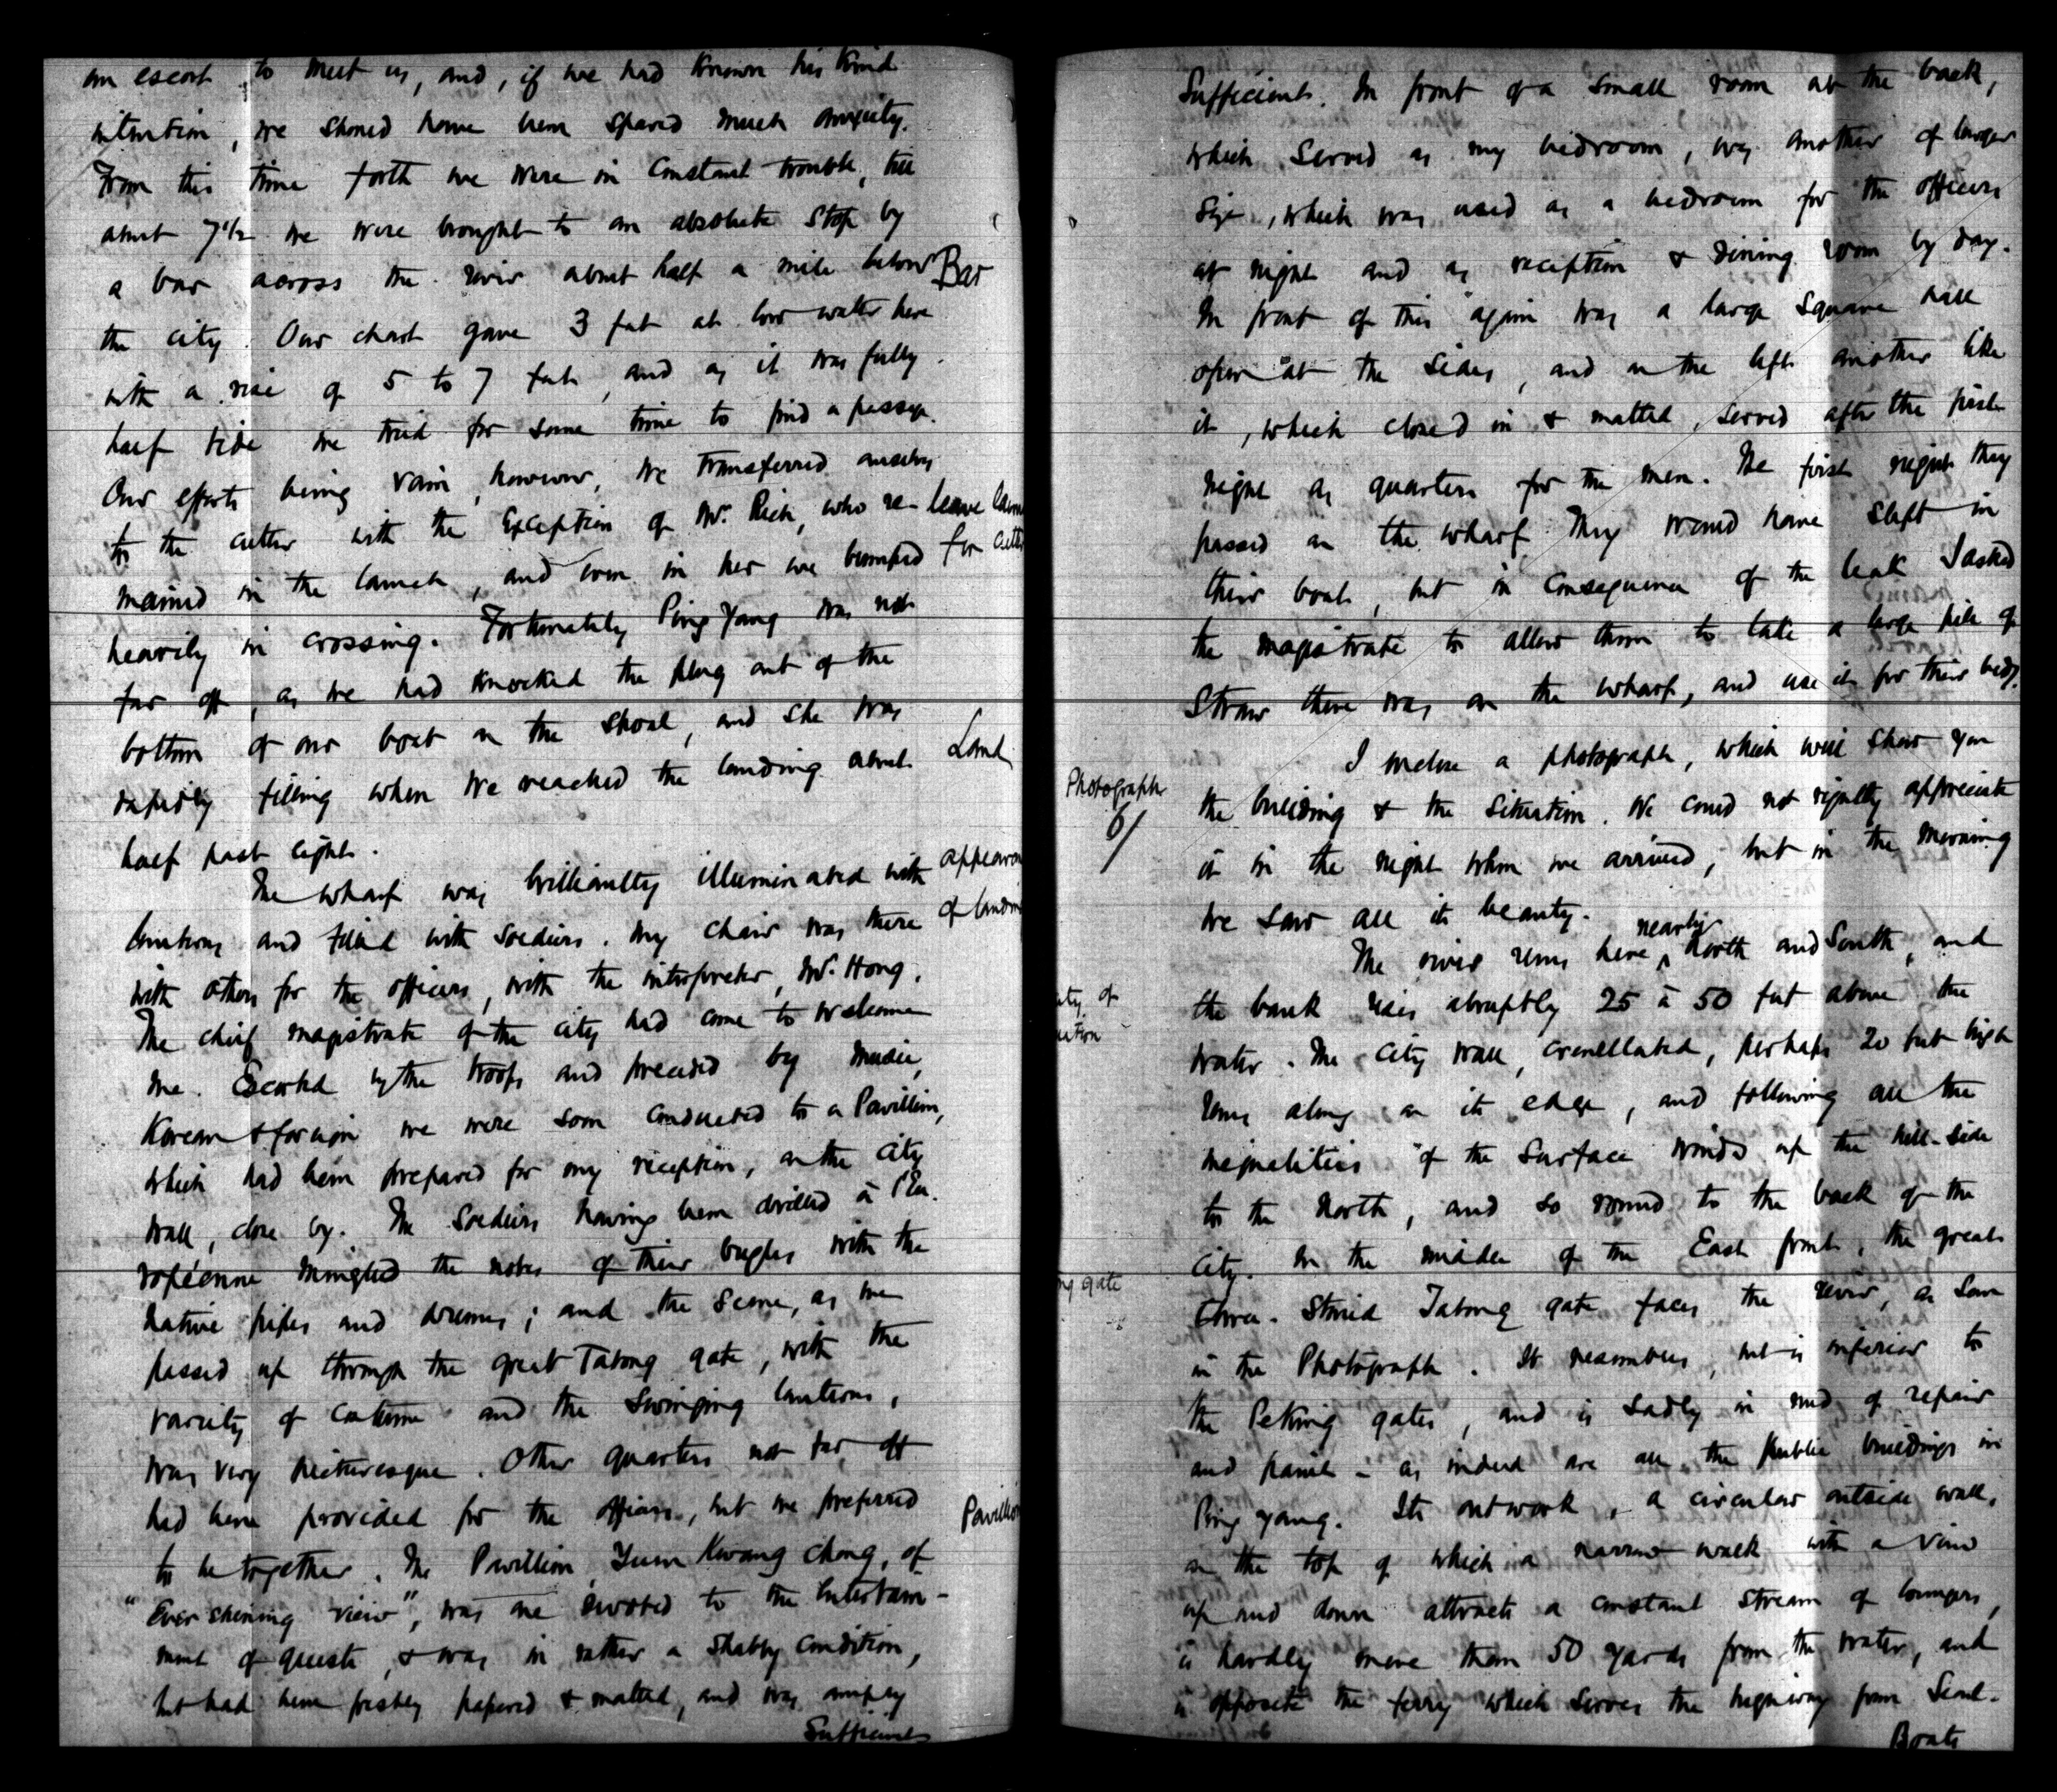 an escort to meet us, and, if we had known his kind
intention, we should have been spared much anxiety.
From this time forth we were in constant trouble, till
about 7½ we were brought to an absolute stop by
a bar across the river about half a mile below
Bar
the city. Our chart gave 3 feet at low water here
with a rise of 5 to 7 feet, and as it was fully
half tide we tried for some time to find a passage.
Our efforts being vain, however, we transferred ourselves
to the cutter with the exception of Mr. Rich, who re-
leave
mained in the launch, and even in her we bumped
for
heavily in crossing. Fortunately Ping Yang was not
far off, as we had knocked the plug out of the
bottom of our boat on the shoal, and she was
rapidly filling when we reached the landing about
Land
half past eight.
The wharf was brilliantly illuminated with
lanterns and filled with soldiers. My chair was there
of
with others for the officers, with the interpreter, Mr. Hong.
The chief magistrate of the city had come to welcome
me. Escorted by the troops and preceded by music,
Korean & foreign we were soon conducted to a Pavillion,
which had been prepared for my reception, on the city
wall, close by. The soldiers having been drilled à l'Eu-
ropéenne mingled the notes of their bugles with the
native pipes and drums; and the scene, as we
passed up through the great Tatong gate, with the
variety of costume and the swinging lanterns,
was very picturesque. Other quarters not far off
had been provided for the officers, but we preferred
Pavillion
to be together. The Pavillion, Yuen Kwang Chong, of
"Ever shining view", was one devoted to the entertain-
ment of guests, & was in rather a shabby condition,
but had been freshly papered & matted, and was amply
Sufficient
Sufficient. In front of a small room at the back,
which served as my bedroom, was another of larger
size, which was used as a bedroom for the officers
at night and as reception & dining room by day.
In front of this again was a large square hall
open at the sides, and on the left another like
it, which closed in & matted, served after the first
night as quarters for the men. The first night they
passed on the wharf. They would have slept in
their boat, but in consequence of the leak I asked
the magistrate to allow them to take a large pile of
straw there was on the wharf, and use it for their beds.
I enclose a photograph, which will show you
Photograph
6/
the building & the situation. We could not rightly appreciate
it in the night when we arrived, but in the morning
we saw all its beauty.
The river runs here nearly North and South, and
the bank rises abruptly 25 à 50 feet above the
water. The city wall, crenellated, perhaps 20 feet high
runs along on its edge, and following all the
inequalities of the surface winds up the hill-side
to the North, and so round to the back of the
city. In the middle of the East front, the great
gate
three-storied Tatong gate faces the river, as seen
in the Photograph. It resembles, but is inferior to
the Peking gates, and is sadly in need of repair
and paint - as indeed are all the public buildings in
Ping Yang. Its outwork, a circular outside wall,
on the top of which a narrow walk with a view
up and down attracts a constant stream of loungers,
is hardly more than 50 yards from the water, and
is opposite the ferry which serves the highway from Seoul.
Boats